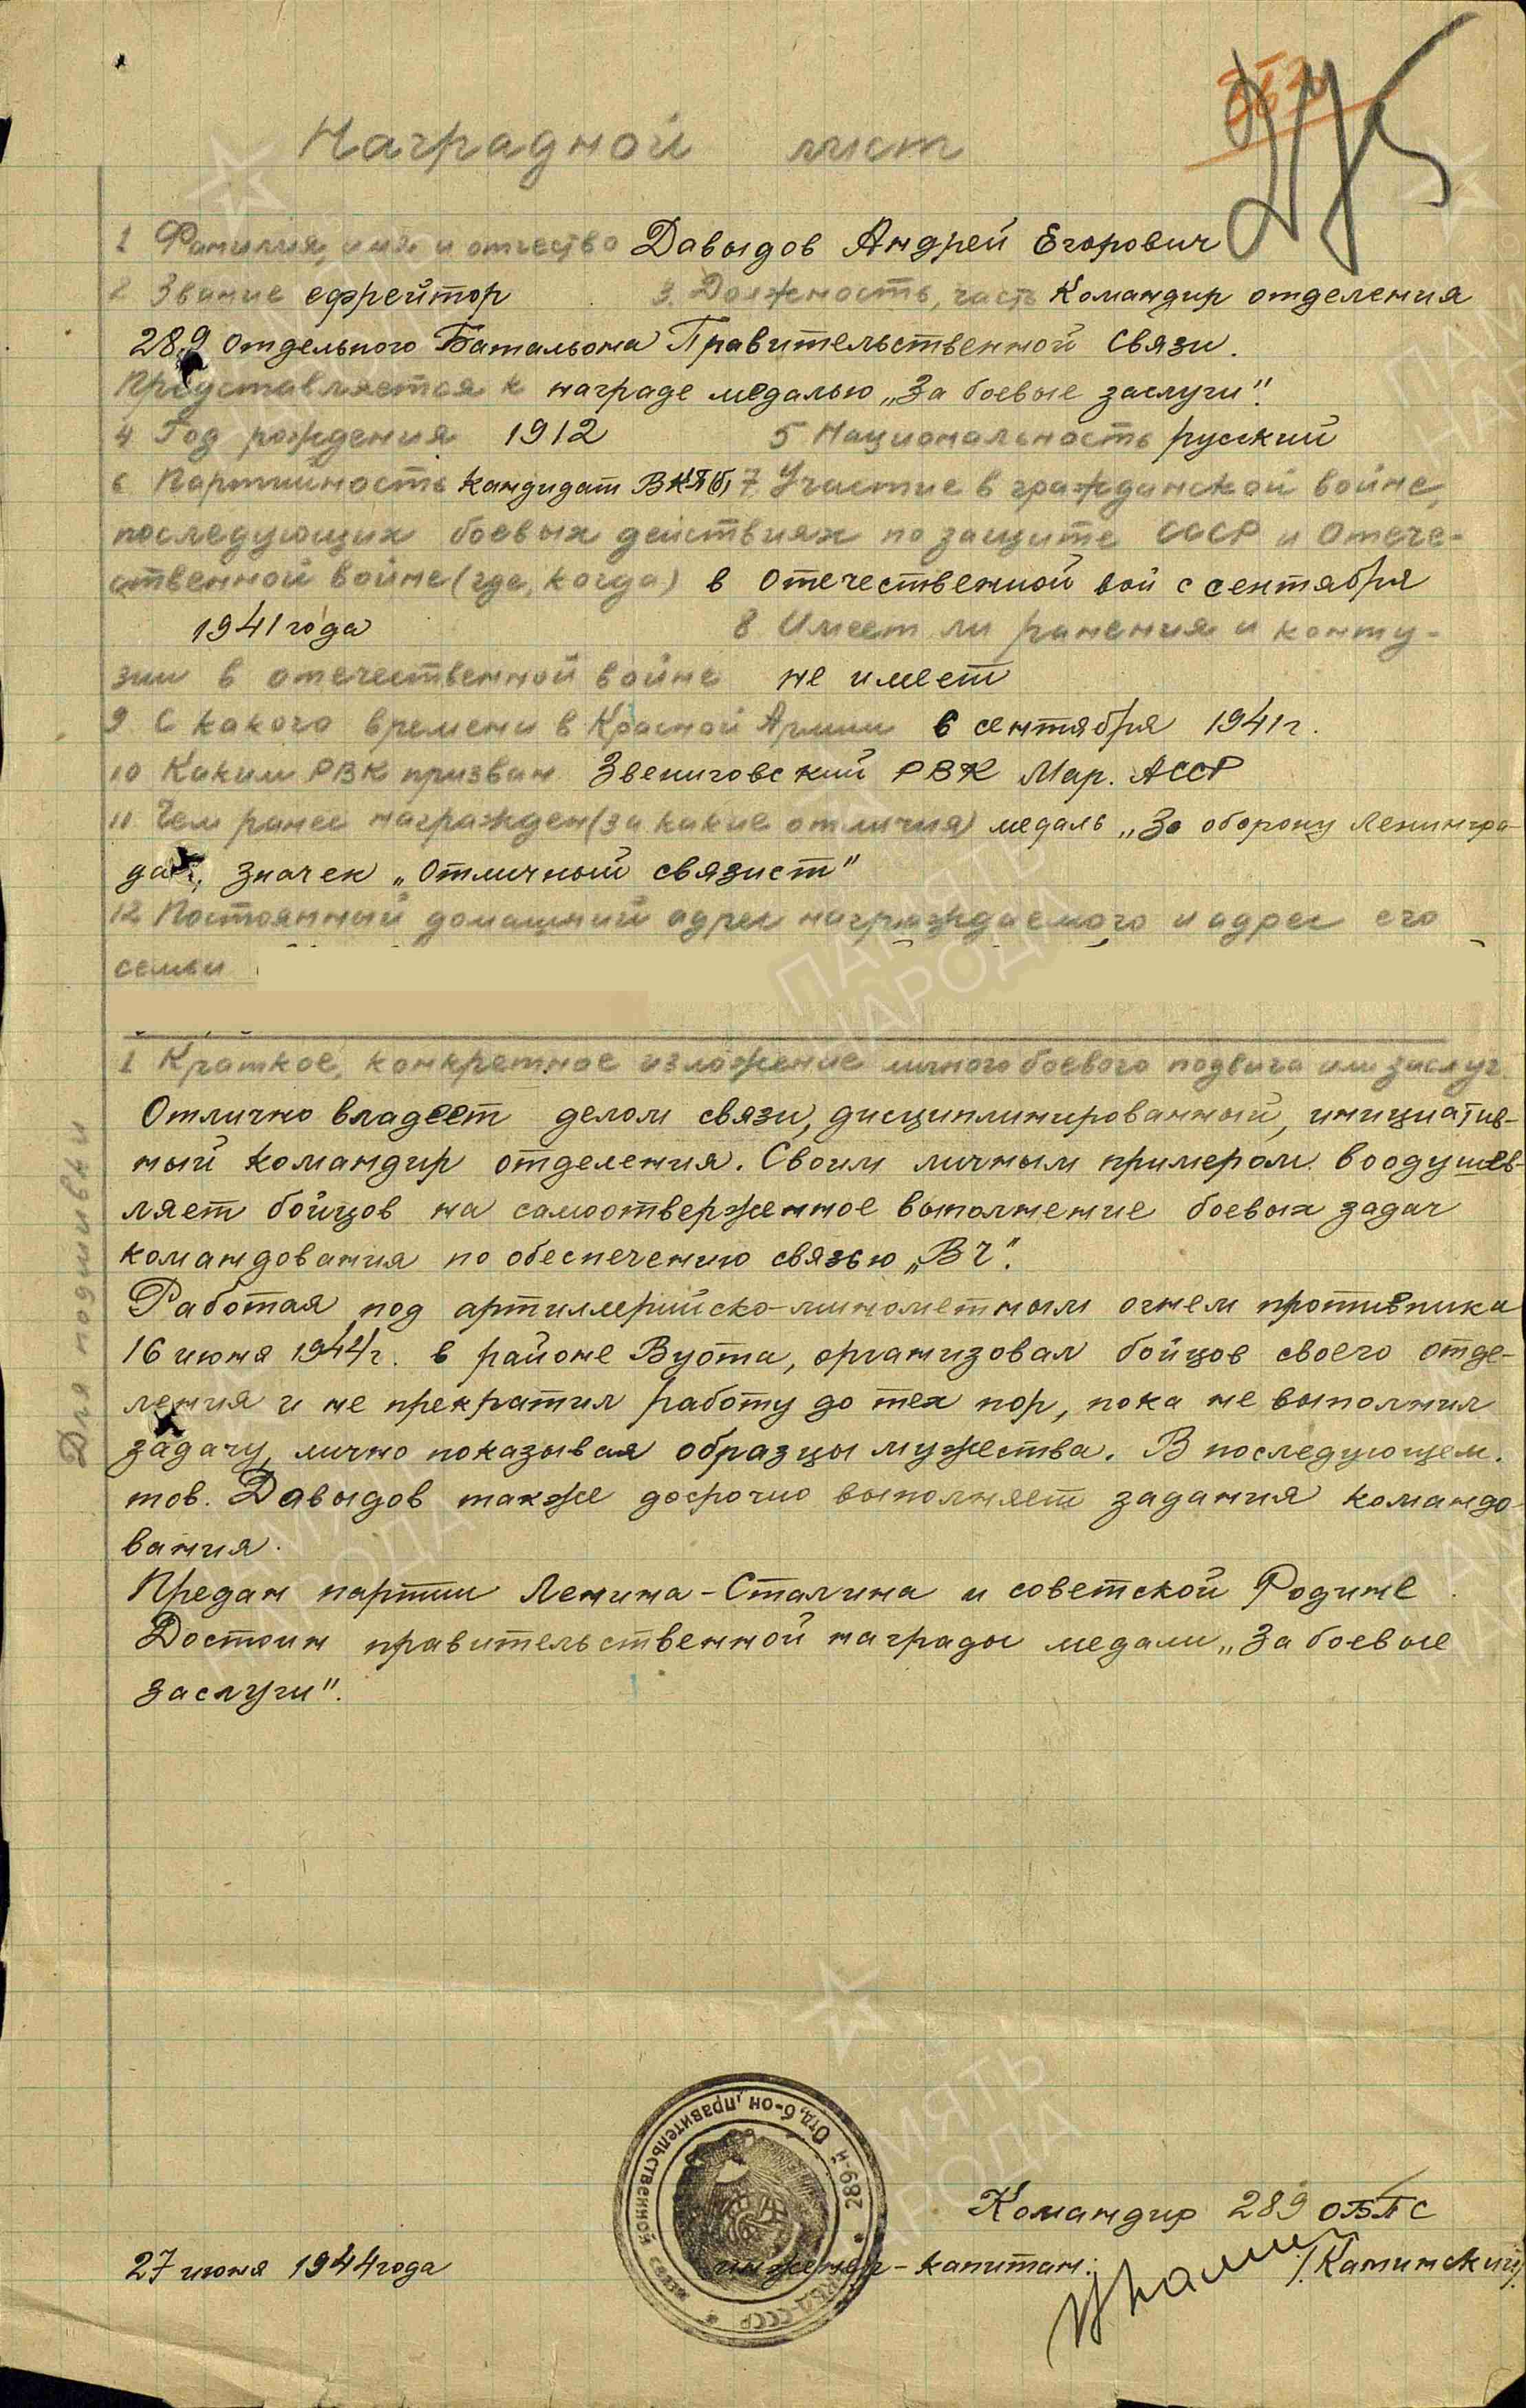 Наградной лист
1 Фамилия, имя и отчество Давыдов Андрей Егорович
2 Звание ефрейтор 3. Должность, часть Командир отделения
289 Отдельного Батальона Правительственной Связи.
Представляется к награде медалью „За боевые заслуги".
4 Год рождения 1912 5 Национальность русский
6 Партийность кандидат ВКП(б) 7. Участие в гражданской войне,
последующих боевых действиях по защите СССР и Отече-
ственной войне (где, когда) в Отечественной вой с сентября
1941 года 8 Имеет ли ранения и конту-
зии в отечественной войне не имеет
9 С какого времени в Красной Армии в сентября 1941 г.
10 Каким РВК призван Звениговский РВК Мар. АССР
11 Чем ранее награжден (за какие отличия) медаль „За оборону Ленингра-
да", значек „Отличный связист"
12 Постоянный домашний адрес награждаемого и адрес его
семьи
1 Краткое, конкретное изложение личного боевого подвига или заслуг
Отлично владеет делом связи, дисциплинированный, инициатив-
ный командир отделения. Своим личным примером воодушев-
ляет бойцов на самоотверженное выполнение боевых задач
командования по обеспечению связью „ВЧ".
Работая под артиллерийско-минометным огнем противника
16 июня 1944 г. в районе Вуота, организовал бойцов своего отде-
ления и не прекратил работу до тех пор, пока не выполнил
задачу, лично показывая образцы мужества. В последующем.
тов. Давыдов также досрочно выполняет задания командо-
вания.
Предан партии Ленина-Сталина и советской Родине.
Достоин правительственной награды медали „За боевые
заслуги".
Для подшивки
289-й Отд. б-он правительственной связи НКВД-СССР
Командир 289 ОБПС
27 июня 1944 года инженер-капитан: /Калинский/
ПАМЯТЬ
НАРОДА